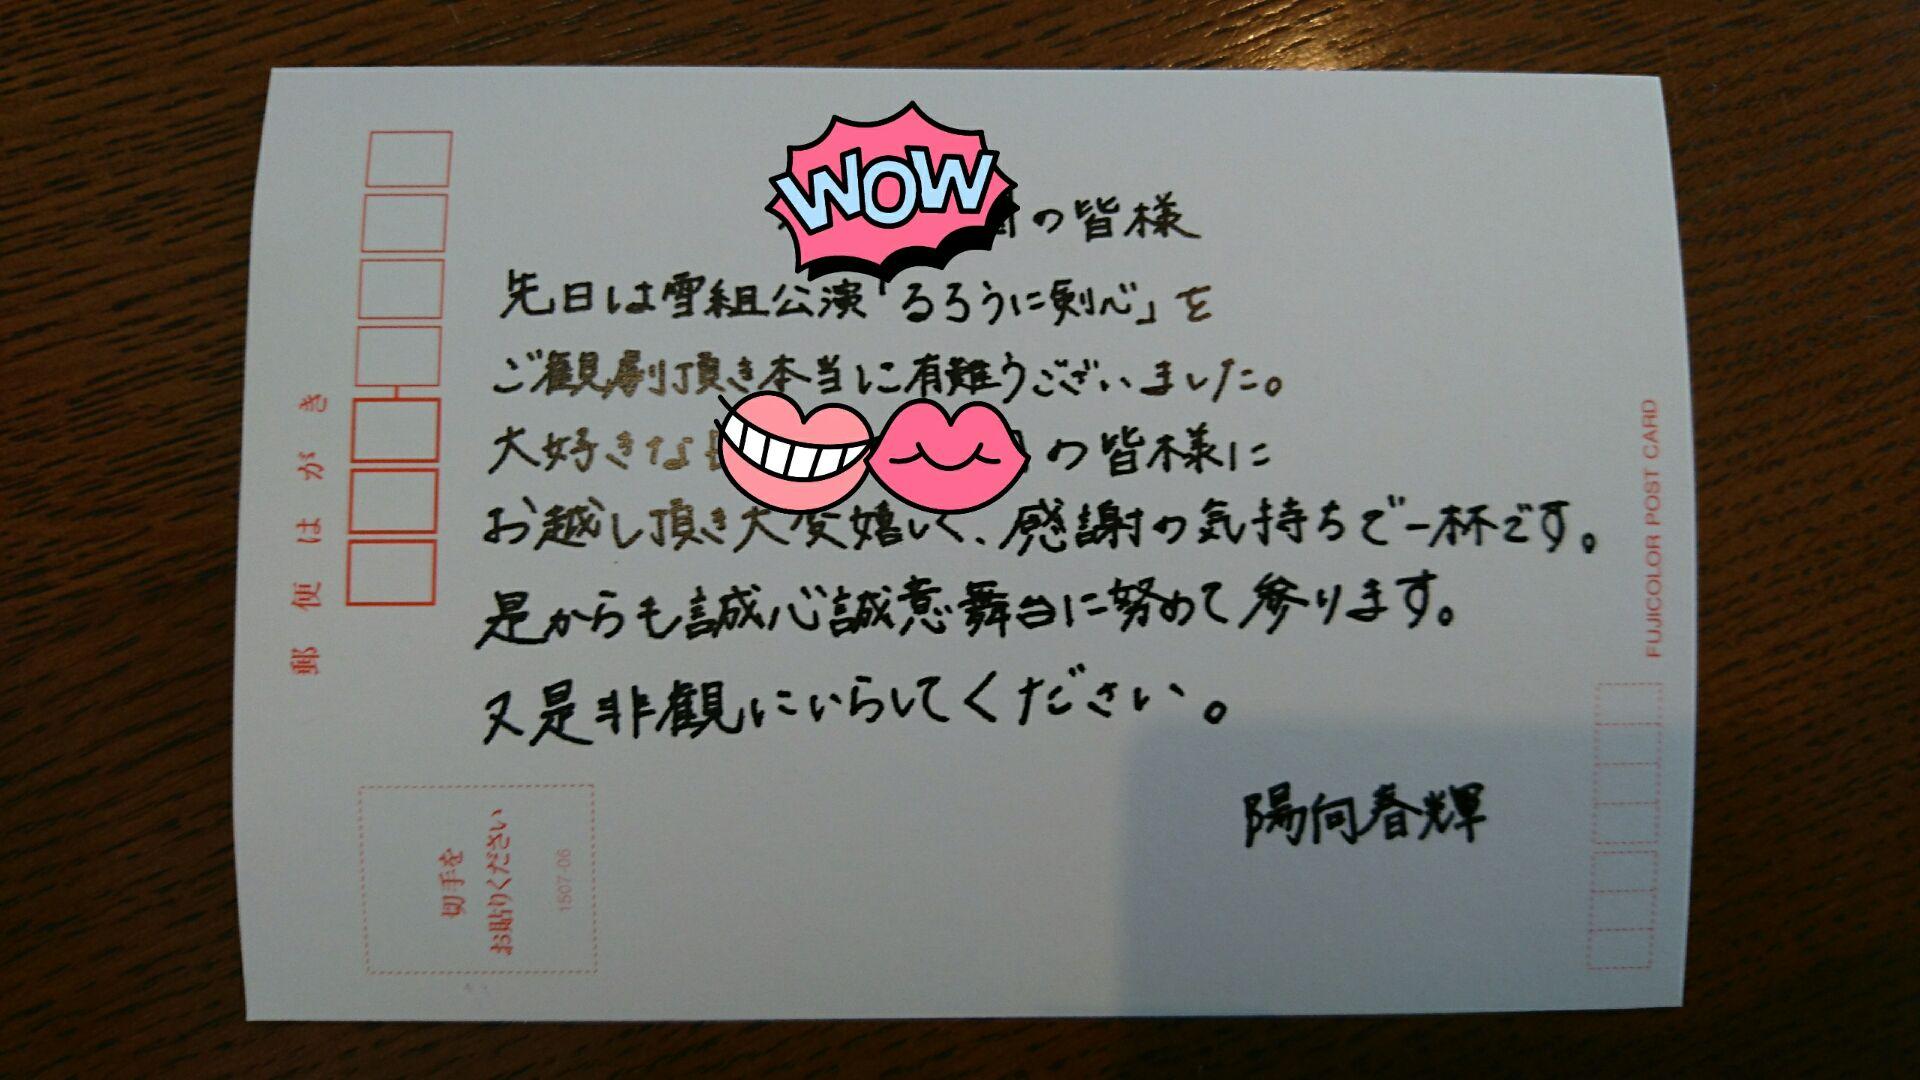 WOW
の皆様
先日は雪組公演「るろうに剣心」を
ご観劇頂き本当に有難うございました。
大好きな
の皆様に
お越し頂き大変嬉しく、感謝の気持ちで一杯です。
是からも誠心誠意舞台に努めて参ります。
又是非観にいらしてください。
陽向春輝
郵便はがき
切手を
お貼りください
1507-06
FUJICOLOR POST CARD